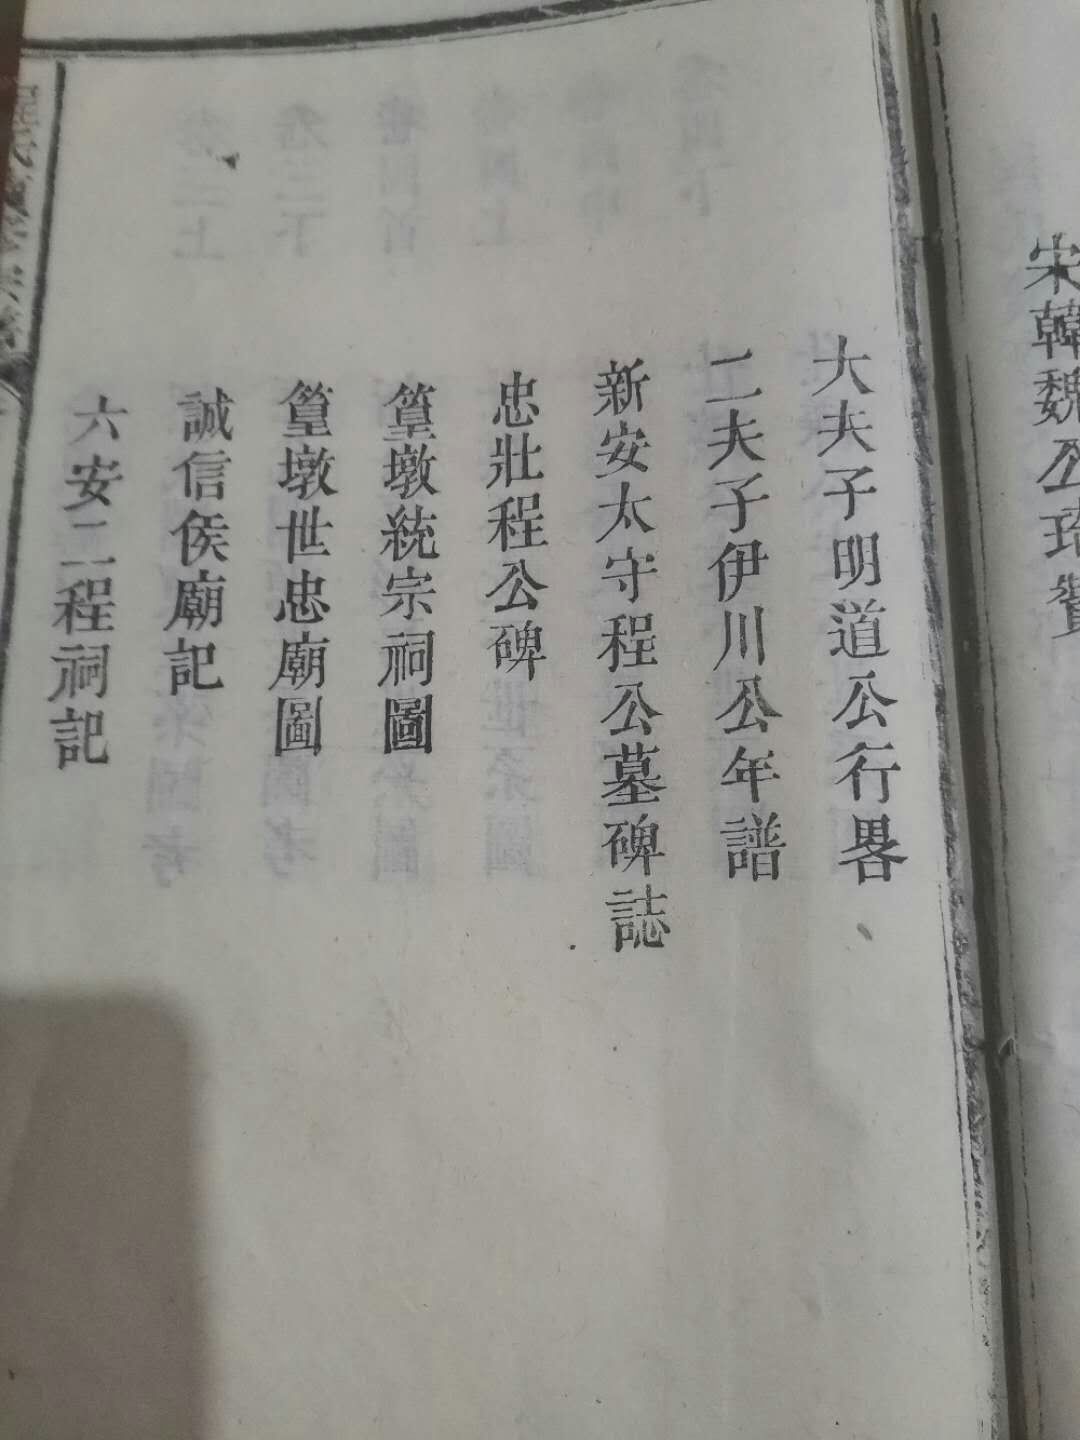 宋韓魏公琦贊
大夫子明道公行畧
二夫子伊川公年譜
新安太守程公墓碑誌
忠壯程公碑
篁墩統宗祠圖
篁墩世忠廟圖
誠信侯廟記
六安二程祠記